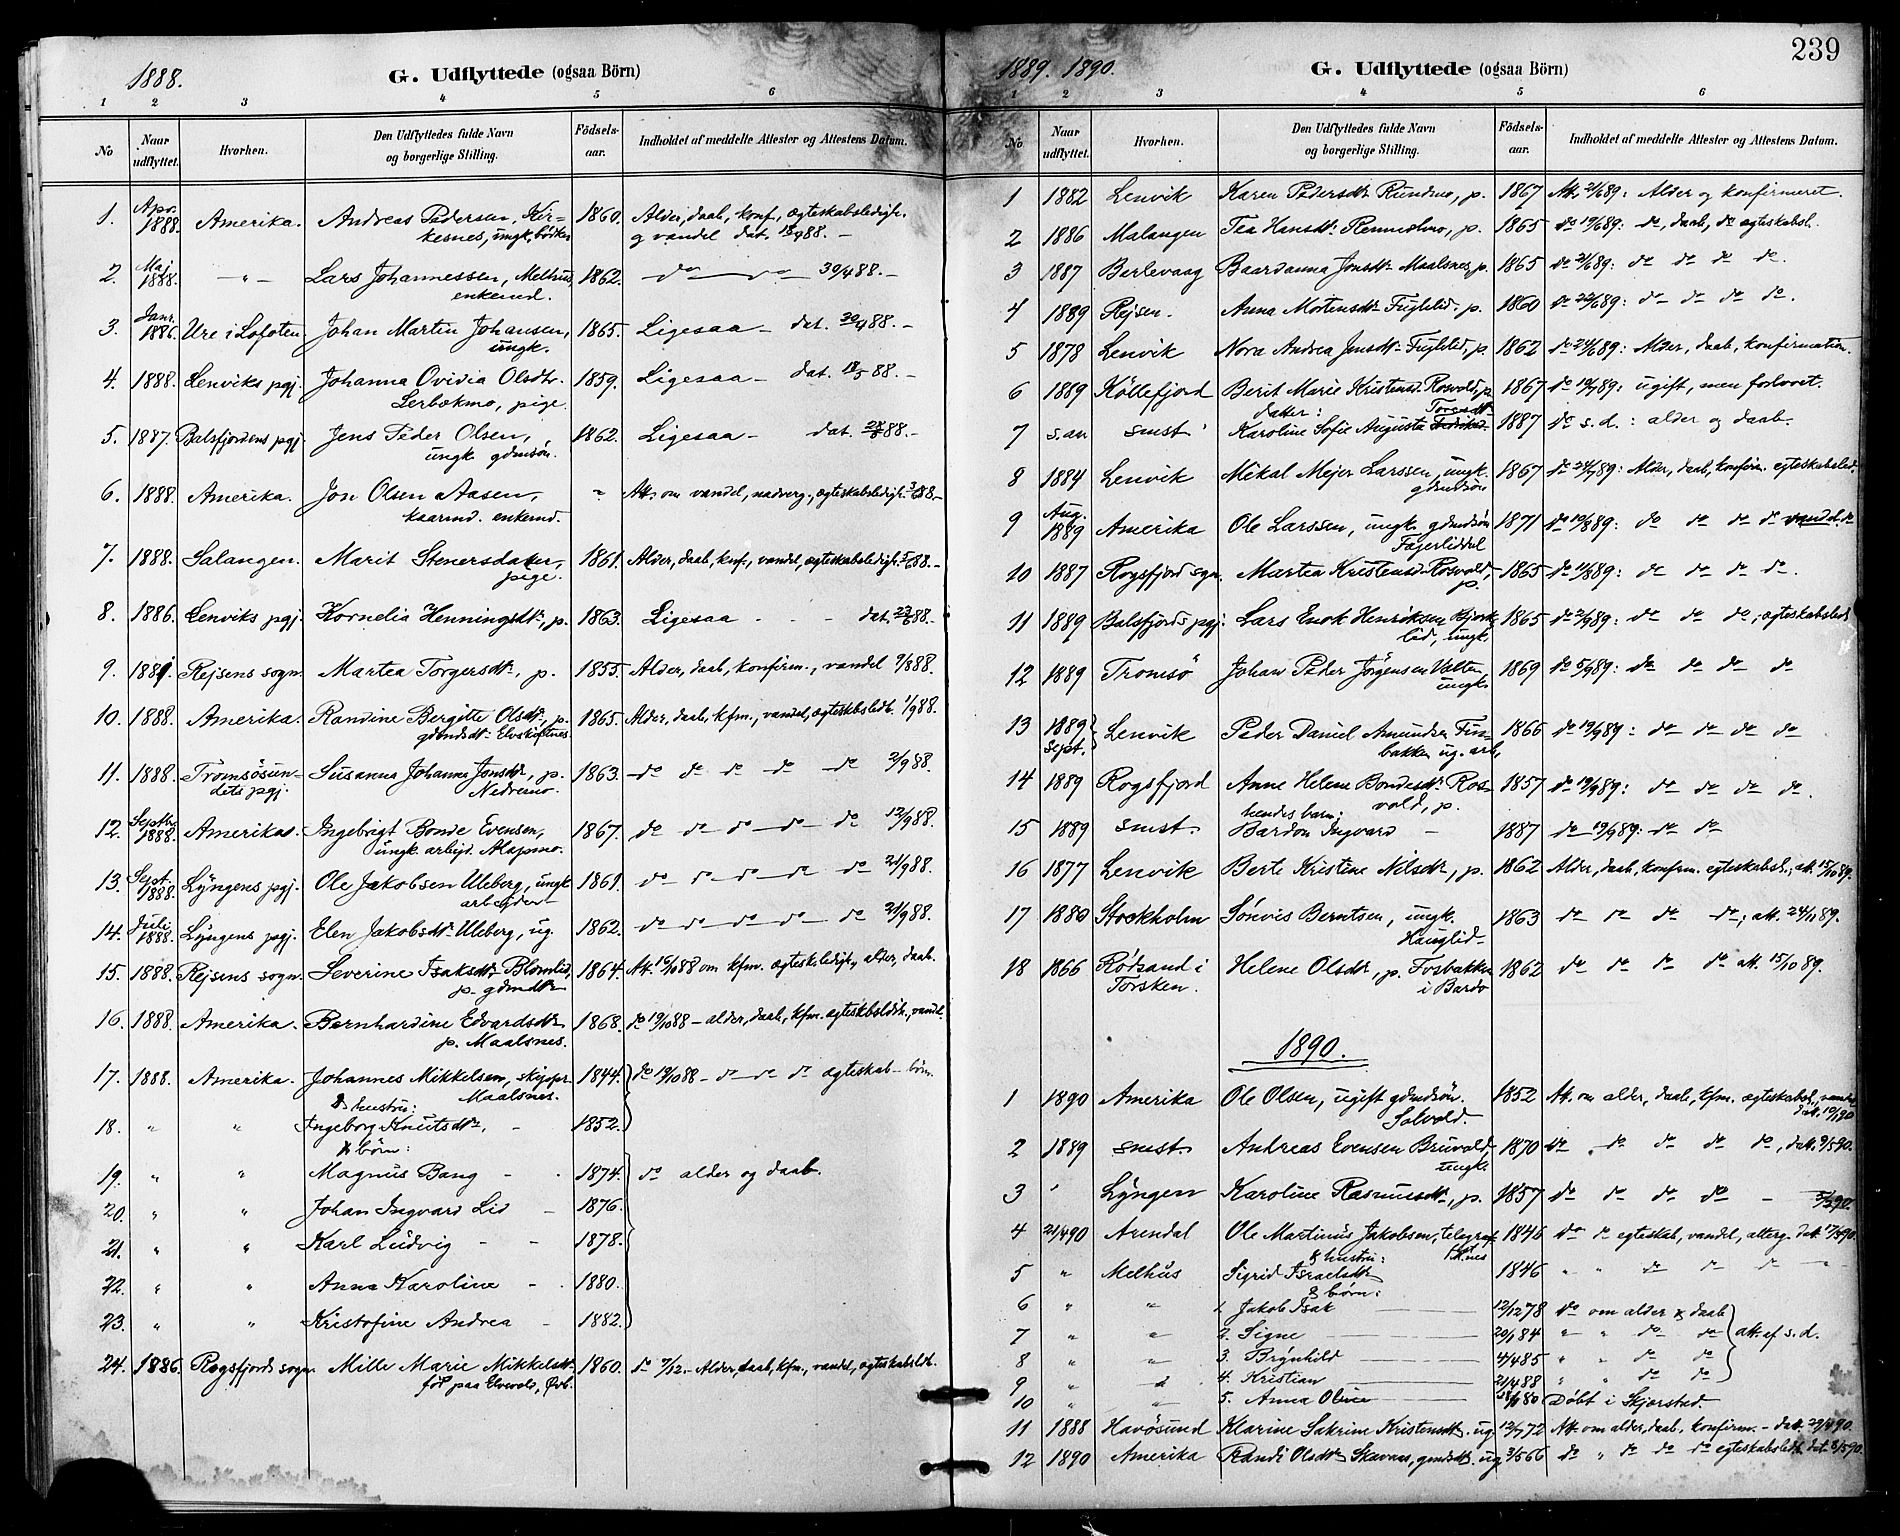 1888.
G. Udflyttede (ogsaa Börn)
1 2 3 4 5 6
No Naar udflyttet. Hvorhen. Den Udflyttedes fulde Navn og borgerlige Stilling. Födselsaar. Indholdet af meddelte Attester og Attestens Datum.
1. Apr. 1888. Amerika. Andreas Pedersen, Kir- 1860. Alder, daab, konf., ægteskabsledigh.
kesnes, ungk., og vandel dat. 88. –
2. Maj 1888. –"– Lars Johannessen, Melhus, 1862. do do 30/4 88. –
enkemd.
3. Janr. 1886. Ure i Lofoten. Johan Martin Johansen, 1865. Ligesaa – dat. 30/4 88. –
ungk.
4. 1888. Lenviks pgj. Johanna Ovidia Olsdtr. 1859. Ligesaa – dat. 88. –
Lerbækmo, pige.
5. 1887. Balsfjordens pgj. Jens Peder Olsen, 1862. Ligesaa – dat. 88. –
ungk. gdmsön.
6. 1888. Amerika. Jon Olsen Aasen, " Att. om vandel, nadverg., ægteskabsledigh. 88. –
kaarmd. enkemd.
7. 1888. Salangen. Marit Stenersdatter, 1861. Alder, daab, knf., vandel, ægteskabsledigh. 88. –
pige.
8. 1886. Lenviks pgj. Kornelia Henningsdtr., p. 1863. Ligesaa – dat. 88. –
9. 1881. Rejsens sogn. Martea Torgersdtr., p. 1855. Alder, daab, konfirm., vandel 9/8 88.
10. 1888. Amerika. Randine Bergitte Olsdtr., p. 1865. Alder, daab, kfm., vandel, ægteskbsledh. 1/9 88.
gdmdsdtr. Elvskiftnes
11. 1888. Tromsösun- Susanna Johanna Jonsdtr., p. 1863. do do do do do 2/9 88.
dets pgj. Nedremo.
12. Septbr. 1888. Amerika. Ingebrigt Bonde Evensen, 1867. do do do do do 12/9 88.
ungk. arbejd. Alapmo.
13. Sept. 1888. Lyngens pgj. Ole Jakobsen Uleberg, ungk. 1861. do do do do do 21/9 88.
arbejder
14. Juli 1888. Lyngens pgj. Elen Jakobsdtr. Uleberg, ug. 1862. do do do do do 21/9 88.
15. 1888. Rejsens sogn. Severine Isaksdtr. Blomlid, 1864. Att. 10/10 88 om kfm. ægtesk.ledigh., alder, daab.
p. gdmdtr.
16. 1888. Amerika. Bernhardine Edvardsdtr. 1868. do 19/10 88 – alder, daab, kfm. ægteskbsldh., vandl.
p. Maalsnes.
17. 1888. Amerika. Johannes Mikkelsen, skippr. 1844. do 19/10 88 – do do do ægteskab – börn.
Maalsnes.
& hustru:
18. " " Ingeborg Knutsdtr. – 1852.
& börn:
19. " " Magnus Bang – 1874. do alder og daab.
20. " " Johan Ingvard Lid – 1876.
21. " " Karl Ludvig – – 1878.
22. " " Anna Karoline – 1880.
23. " " Kristofine Andrea – 1882.
24. 1886. Rogsfjords sogn. Mille Marie Mikkelsdtr. 1860. do 7/12. – Alder, daab, kfm., vandel, ægteskabsldh.
föd paa Elvevold, Övb.
1889. 1890.
G. Udflyttede (ogsaa Börn)
239
1 2 3 4 5 6
No Naar udflyttet. Hvorhen. Den Udflyttedes fulde Navn og borgerlige Stilling. Födselsaar. Indholdet af meddelte Attester og Attestens Datum.
1 1882 Lenvik Karen Pedersdtr. Rundmo, p. 1867 Att. 2/6 89: Alder og konfirmeret.
2 1886 Malangen Tea Hansdtr. Rennedmo, p. 1865 do 19/6 89: do, daab, do ægteskabsl.
3 1887 Berlevaag Baardanna Jonsdtr. Maalsnes, p. 1865 do 21/6 89: do do do do.
4 1889 Rejsen. Anna Mortensdtr. Fuglelid. p. 1860 do 22/6 89: do do do do.
5 1878 Lenvik Nora Andrea Jensdtr. Fuglelid, p. 1862 do 24/6 89: Alder, daab, konfirmation.
6 1889 Köllefjord Berit Marie Kristensd. Rosvold, p. 1867 do 19/7 89: ugift, men forlovet.
datter: Toresdtr.
7 s. aar smst. Karoline Sofie Augusta 1887 do s. d. : alder og daab.
8 1884 Lenvik Mikal Mejer Larssen, ungk. 1867 do 24/7 89: Alder, daab, konfirm. egteskabsled.
gdmdsön
9 Aug. 1889 Amerika Ole Larssen, ungk. gdmdsön 1871 do 10/8 89: do do do do vandel do
Fagerliddel
10 1887 Rogsfjord sgn. Martea Kristensd. Rosvold, 1865 do 11/8 89: do do do do.
p.
11 1889 Balsfjords pgj. Lars Enok Henriksen Bjerk- 1865 do 2/9 89: do do do, ægteskabsled.
lid, ungk.
12 1889 Tromsö Johan Peder Jörgensen Valten 1869 do 5/9 89: do do do do
ungk.
13 1889 Sept. Lenvik Peder Daniel Amundsen Fus- 1866 do 19/9 89: do do do do
bakken ug. arb.
14 1889 Rogsfjord Anne Helene Bondesdtr. Ros- 1857 do 19/9 89: do do do do.
vold, p.
hendes barn:
15 1889 smst. Bardon Ingvard – 1887 do 19/9 89: do do
16 1877 Lenvik Berte Kristine Nilsdtr., p. 1862 Alder, daab, konfrm. egteskabsl., att. 15/10 89.
17 1880 Stockholm Sönvis Berntsen, ungk. 1863 do do do do; att. 24/11 89.
Hauglid –
18 1866 Rödsand i Helene Olsdtr., p. Fosbakken 1862 do do do do att. 15/10 89.
Torsken. i Bardo
1890.
1 1890 Amerika Ole Olsen, ugift gdmdsön. 1852 Att. om alder, daab, kfm. ægteskabsl., vandel
Solvold. dat. 10/1 90
2 1889 smst. Andreas Evensen Bruvold, 1870 do do do do do, dat. 9/5 90.
ungk.
3 ' Lyngen Karoline Rasmusdtr., p. 1857 do do do do – 90.
4 21/4 90 Arendal Ole Martinus Jakobsen, telegraf- 1846 do do egteskab, vandel, alterg. dat. 17/5 90.
& hustru:
5 " Melhus Sigrid Israelsdtr. 1846 " " do do do "
& börn:
6 " " 1. Jakob Isak 12/12 78 do om alder & daab
7 " " 2. Signe 20/1 84 " " do do att. af s. d.
8 " " 3. Brynhild 4/4 85 " " do do
9 " " 4. Kristian 21/4 88 " " do do
10 " " 5. Anna Oline 80 Döbt i Skjerstad.
11 1888 Havösund Klarine Sakrine Kristensdtr. ug. 12/7 72 Att. om alder, daab, konfirm. – dat. 29/4 90.
12 1890 Amerika Randi Olsdtr. Skavnes, gmdsdtr. ug. 3/5 66 do " do do do egteskabsledh. dat. 8/5 90.